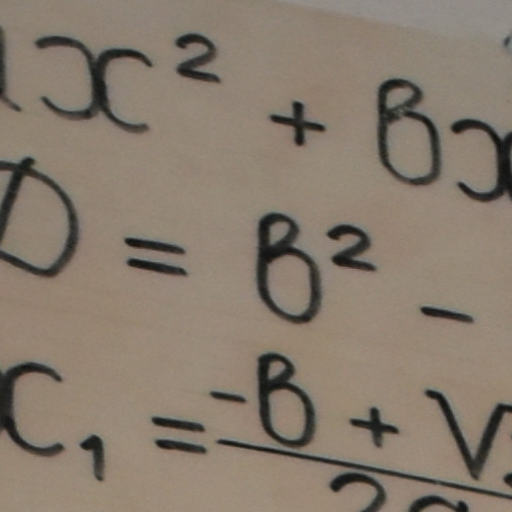 x² + bx
D = b² -
x₁ = -b + √
2a